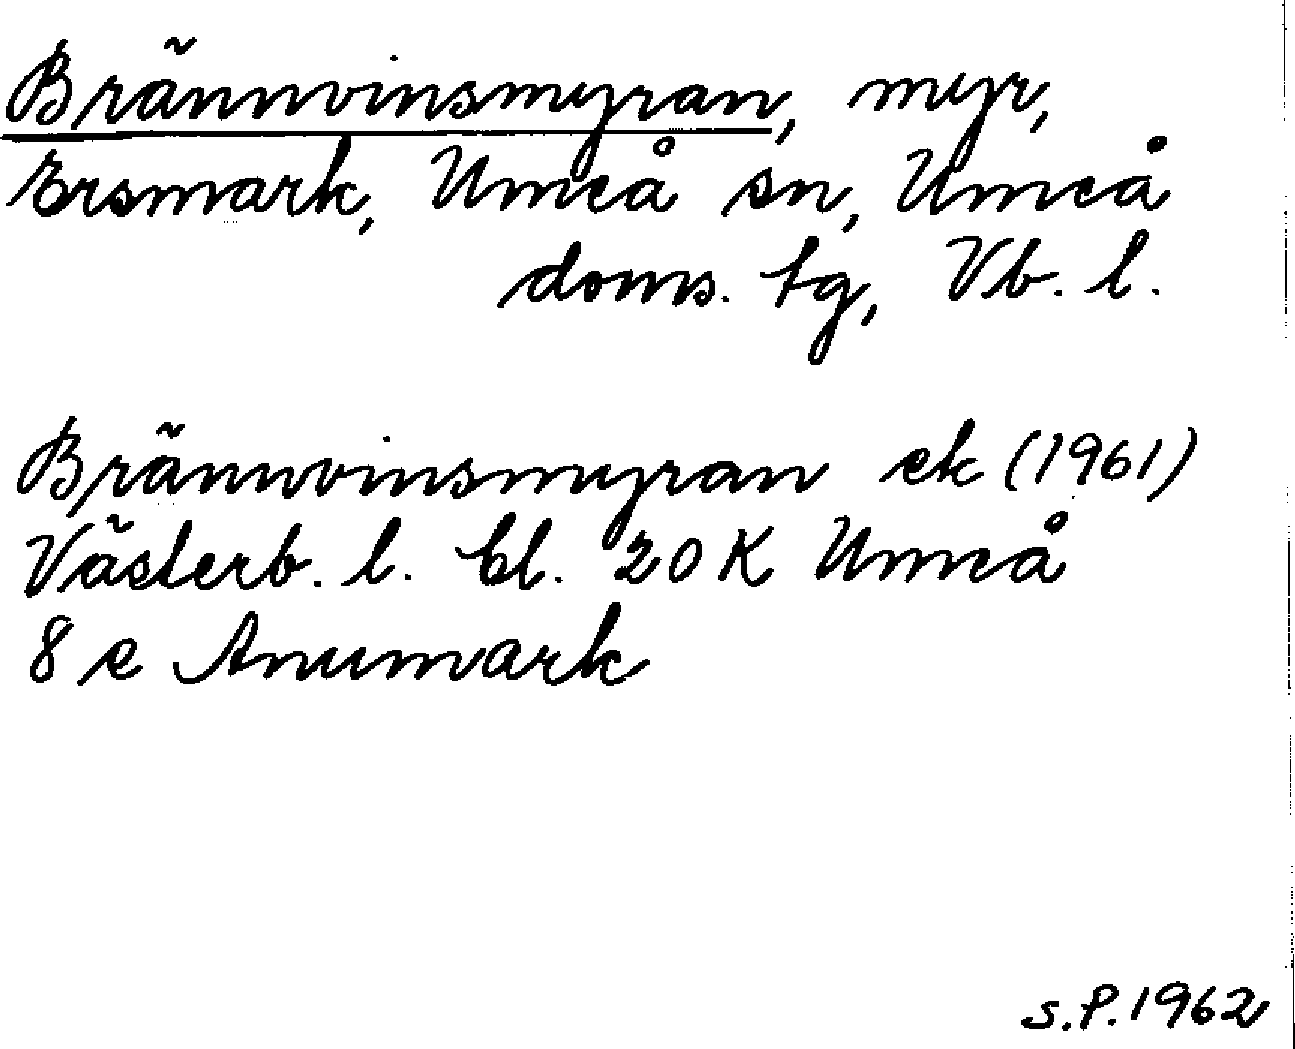 Brännvinsmyran, myr,
Ersmark, Umeå sn, Umeå
doms. tg, Vb. l.
Brännvinsmyran ek (1961)
Västerb. l. bl. 20 K Umeå
8 e Anumark
S.P. 1962